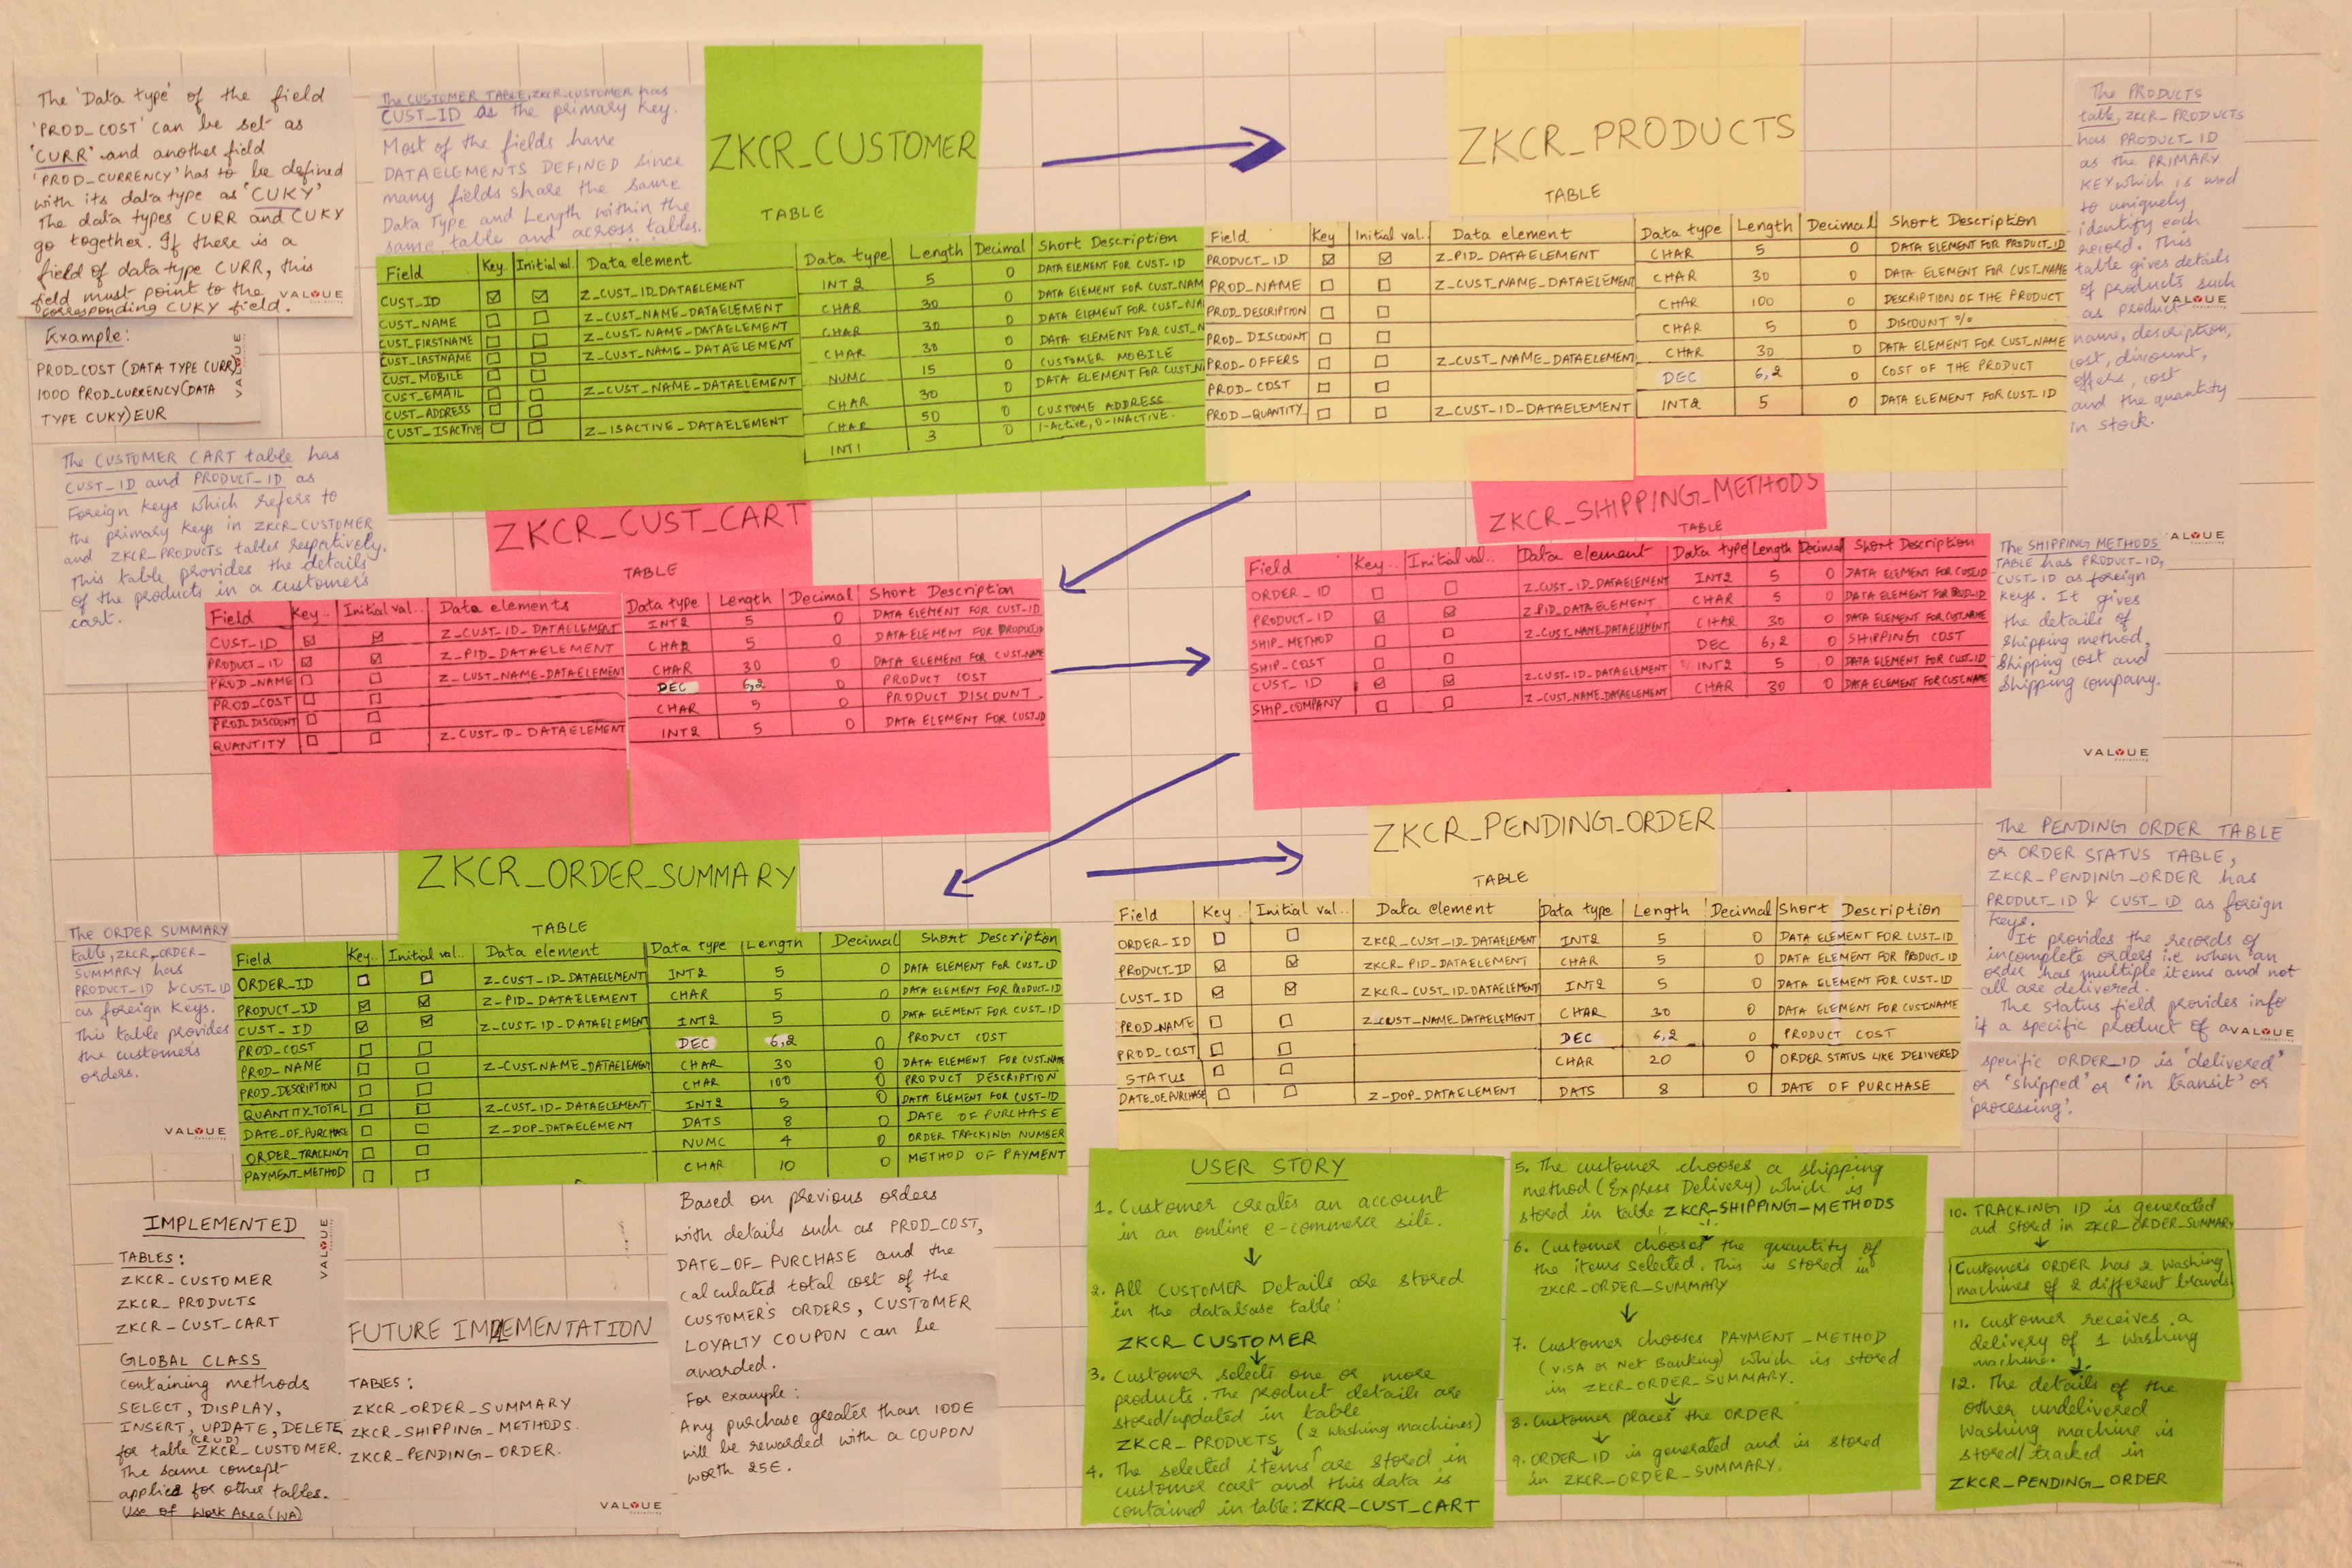 The 'Data type' of the field
'PROD_COST' can be set as
'CURR' and another field
'PROD_CURRENCY' has to be defined
with its data type as 'CUKY'
The data types CURR and CUKY
go together. If there is a
field of data type CURR, this
field must point to the
corresponding CUKY field.
VALUE
Example:
PROD_COST (DATA TYPE CURR)
1000 PROD_CURRENCY(DATA
TYPE CUKY) EUR
VALUE
The CUSTOMER TABLE, ZKCR_CUSTOMER has
CUST_ID as the primary key.
Most of the fields have
DATAELEMENTS DEFINED since
many fields share the same
Data Type and Length within the
same table and across tables.
ZKCR_CUSTOMER
TABLE
Field Key Initial val. Data element Data type Length Decimal Short Description
CUST_ID Z_CUST_ID_DATAELEMENT INT2 5 0 DATA ELEMENT FOR CUST_ID
CUST_NAME Z_CUST_NAME_DATAELEMENT CHAR 30 0 DATA ELEMENT FOR CUST_NAM
CUST_FIRSTNAME Z_CUST_NAME_DATAELEMENT CHAR 30 0 DATA ELEMENT FOR CUST_NA
CUST_LASTNAME Z_CUST_NAME_DATAELEMENT CHAR 30 0 DATA ELEMENT FOR CUST_N
CUST_MOBILE NUMC 15 0 CUSTOMER MOBILE
CUST_EMAIL Z_CUST_NAME_DATAELEMENT CHAR 30 0 DATA ELEMENT FOR CUST_N
CUST_ADDRESS CHAR 50 0 CUSTOME ADDRESS
CUST_ISACTIVE Z_ISACTIVE_DATAELEMENT INT1 3 0 1-Active, 0-INACTIVE
ZKCR_PRODUCTS
TABLE
Field Key Initial val.. Data element Data type Length Decimal Short Description
PRODUCT_ID Z_PID_DATAELEMENT CHAR 5 0 DATA ELEMENT FOR PRODUCT_ID
PROD_NAME Z_CUST_NAME_DATAELEMENT CHAR 30 0 DATA ELEMENT FOR CUST_NAME
PROD_DESCRIPTION CHAR 100 0 DESCRIPTION OF THE PRODUCT
PROD_DISCOUNT CHAR 5 0 DISCOUNT %
PROD_OFFERS Z_CUST_NAME_DATAELEMENT CHAR 30 0 DATA ELEMENT FOR CUST_NAME
PROD_COST DEC 6,2 0 COST OF THE PRODUCT
PROD_QUANTITY Z_CUST_ID_DATAELEMENT INT2 5 0 DATA ELEMENT FOR CUST_ID
The PRODUCTS
table, ZKCR_PRODUCTS
has PRODUCT_ID
as the PRIMARY
KEY which is used
to uniquely
identify each
record. This
table gives details
of products such
as product
name, description,
cost, discount,
offers, cost
and the quantity
in stock.
VALUE
The CUSTOMER CART table has
CUST_ID and PRODUCT_ID as
Foreign Keys which refers to
the primary keys in ZKCR_CUSTOMER
and ZKCR_PRODUCTS tables respectively.
This table provides the details
of the products in a customer's
cart.
ZKCR_CUST_CART
TABLE
Field Key.. Initial val.. Data elements Data type Length Decimal Short Description
CUST_ID Z_CUST_ID_DATAELEMENT INT2 5 0 DATA ELEMENT FOR CUST_ID
PRODUCT_ID Z_PID_DATAELEMENT CHAR 5 0 DATA ELEMENT FOR PRODUCT_ID
PROD_NAME Z_CUST_NAME_DATAELEMENT CHAR 30 0 DATA ELEMENT FOR CUST_NAME
PROD_COST DEC 6,2 0 PRODUCT COST
PROD_DISCOUNT CHAR 5 0 PRODUCT DISCOUNT
QUANTITY Z_CUST_ID_DATAELEMENT INT2 5 0 DATA ELEMENT FOR CUST_ID
ZKCR_SHIPPING_METHODS
TABLE
Field Key.. Initial val.. Data element Data type Length Decimal Short Description
ORDER_ID Z_CUST_ID_DATAELEMENT INT2 5 0 DATA ELEMENT FOR CUST_ID
PRODUCT_ID Z_PID_DATAELEMENT CHAR 5 0 DATA ELEMENT FOR PROD_ID
SHIP_METHOD Z_CUST_NAME_DATAELEMENT CHAR 30 0 DATA ELEMENT FOR CUST_NAME
SHIP_COST DEC 6,2 0 SHIPPING COST
CUST_ID Z_CUST_ID_DATAELEMENT INT2 5 0 DATA ELEMENT FOR CUST_ID
SHIP_COMPANY Z_CUST_NAME_DATAELEMENT CHAR 30 0 DATA ELEMENT FOR CUST_NAME
ALUE
The SHIPPING METHODS
TABLE has PRODUCT_ID,
CUST_ID as foreign
keys. It gives
the details of
Shipping method,
Shipping cost and
Shipping company.
VALUE
ZKCR_ORDER_SUMMARY
TABLE
Field Key.. Initial val.. Data element Data type Length Decimal Short Description
ORDER_ID Z_CUST_ID_DATAELEMENT INT2 5 0 DATA ELEMENT FOR CUST_ID
PRODUCT_ID Z_PID_DATAELEMENT CHAR 5 0 DATA ELEMENT FOR PRODUCT_ID
CUST_ID Z_CUST_ID_DATAELEMENT INT2 5 0 DATA ELEMENT FOR CUST_ID
PROD_COST DEC 6,2 0 PRODUCT COST
PROD_NAME Z_CUST_NAME_DATAELEMENT CHAR 30 0 DATA ELEMENT FOR CUST_NAME
PROD_DESCRIPTION CHAR 100 0 PRODUCT DESCRIPTION
QUANTITY_TOTAL Z_CUST_ID_DATAELEMENT INT2 5 0 DATA ELEMENT FOR CUST_ID
DATE_OF_PURCHASE Z_DOP_DATAELEMENT DATS 8 0 DATE OF PURCHASE
ORDER_TRACKING NUMC 4 0 ORDER TRACKING NUMBER
PAYMENT_METHOD CHAR 10 0 METHOD OF PAYMENT
The ORDER SUMMARY
table, ZKCR_ORDER_
SUMMARY has
PRODUCT_ID & CUST_ID
as foreign keys.
This table provides
the customer's
orders.
VALUE
ZKCR_PENDING_ORDER
TABLE
Field Key.. Initial val.. Data element Data type Length Decimal Short Description
ORDER_ID ZKCR_CUST_ID_DATAELEMENT INT2 5 0 DATA ELEMENT FOR CUST_ID
PRODUCT_ID ZKCR_PID_DATAELEMENT CHAR 5 0 DATA ELEMENT FOR PRODUCT_ID
CUST_ID ZKCR_CUST_ID_DATAELEMENT INT2 5 0 DATA ELEMENT FOR CUST_ID
PROD_NAME Z_CUST_NAME_DATAELEMENT CHAR 30 0 DATA ELEMENT FOR CUSTNAME
PROD_COST DEC 6,2 0 PRODUCT COST
STATUS CHAR 20 0 ORDER STATUS LIKE DELIVERED
DATE_OF_PURCHASE Z_DOP_DATAELEMENT DATS 8 0 DATE OF PURCHASE
The PENDING ORDER TABLE
or ORDER STATUS TABLE,
ZKCR_PENDING_ORDER has
PRODUCT_ID & CUST_ID as foreign
keys.
It provides the records of
incomplete orders i.e when an
order has multiple items and not
all are delivered.
The Status field provides info
if a specific product of a
VALUE
specific ORDER_ID is 'delivered'
or 'shipped' or 'in transit' or
'processing'.
IMPLEMENTED
TABLES:
ZKCR_CUSTOMER
ZKCR_PRODUCTS
ZKCR_CUST_CART
GLOBAL CLASS
containing methods
SELECT, DISPLAY,
INSERT, UPDATE, DELETE
(CRUD)
for table ZKCR_CUSTOMER.
The same concept
applies for other tables.
Use of Work Area (WA)
VALUE
FUTURE IMPLEMENTATION
TABLES:
ZKCR_ORDER_SUMMARY.
ZKCR_SHIPPING_METHODS.
ZKCR_PENDING_ORDER.
VALUE
Based on previous orders
with details such as PROD_COST,
DATE_OF_PURCHASE and the
calculated total cost of the
CUSTOMER'S ORDERS, CUSTOMER
LOYALTY COUPON can be
awarded.
For example:
Any purchase greater than 100€
will be rewarded with a COUPON
worth 25€.
USER STORY
1. Customer creates an account
in an online e-commerce site.
2. All CUSTOMER Details are stored
in the database table:
ZKCR_CUSTOMER
3. Customer selects one or more
products. The product details are
stored/updated in table
ZKCR_PRODUCTS (2 washing machines)
4. The selected items are stored in
customer cart and this data is
contained in table: ZKCR_CUST_CART
5. The customer chooses a shipping
method (Express Delivery) which is
stored in table ZKCR_SHIPPING_METHODS
6. Customer chooses the quantity of
the items selected. This is stored in
ZKCR_ORDER_SUMMARY
7. Customer chooses PAYMENT_METHOD
(VISA or Net Banking) which is stored
in ZKCR_ORDER_SUMMARY.
8. Customer places the ORDER
9. ORDER_ID is generated and is stored
in ZKCR_ORDER_SUMMARY.
10. TRACKING ID is generated
and stored in ZKCR_ORDER_SUMMARY
Customer's ORDER has 2 washing
machines of 2 different brands
11. Customer receives a
delivery of 1 washing
machine.
12. The details of the
other undelivered
washing machine is
stored/tracked in
ZKCR_PENDING_ORDER